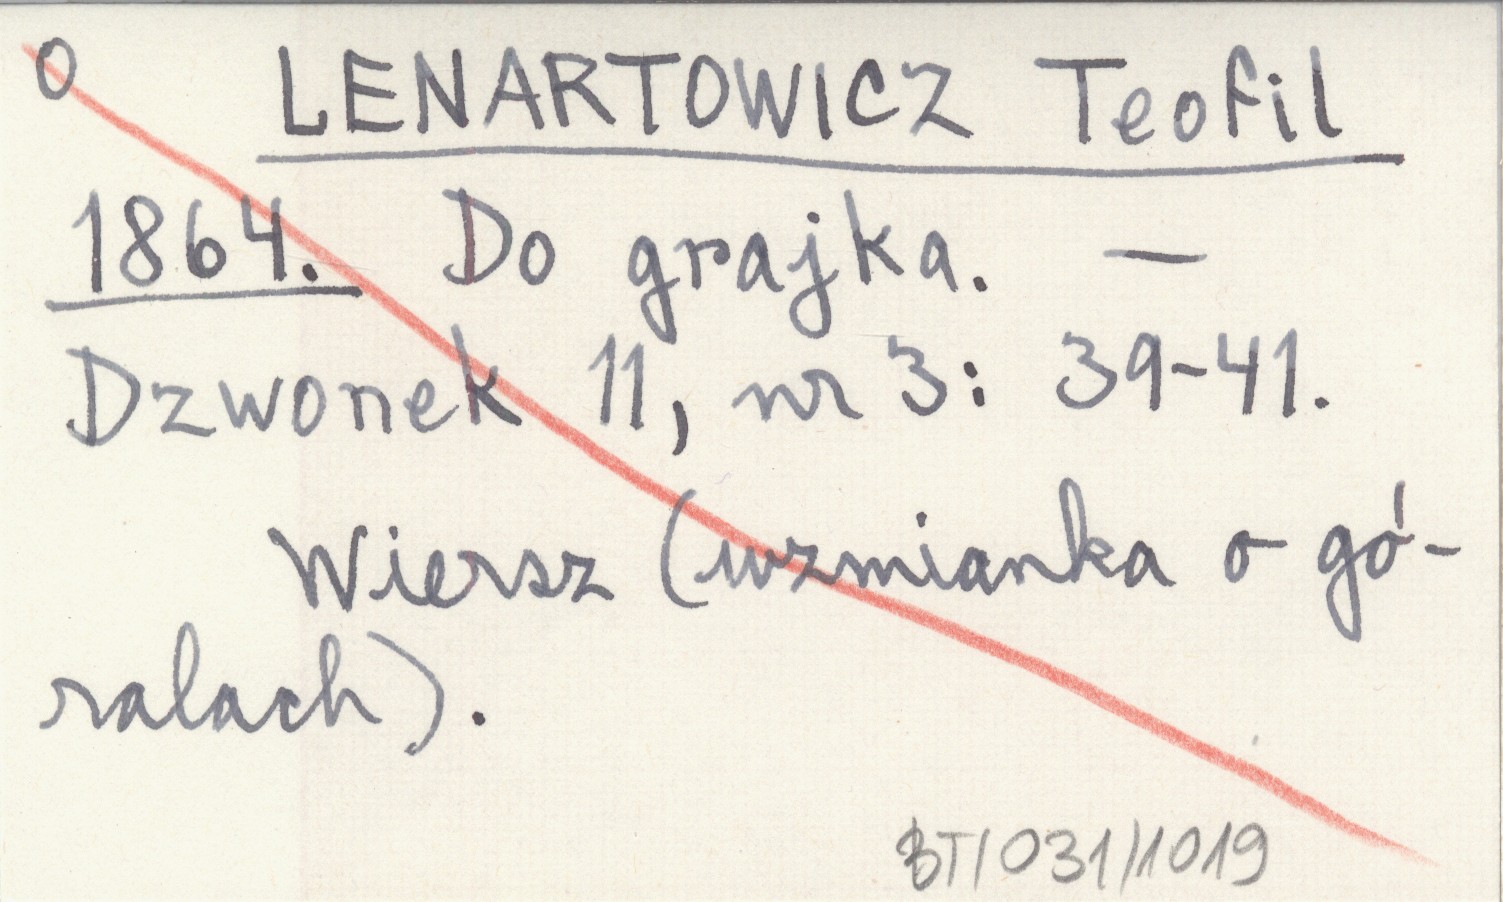 0 LENARTOWICZ Teofil
1864. Do grajka. —
Dzwonek 11, nr 3: 39-41.
Wiersz (wzmianka o gó-
ralach).
BT/031/1019